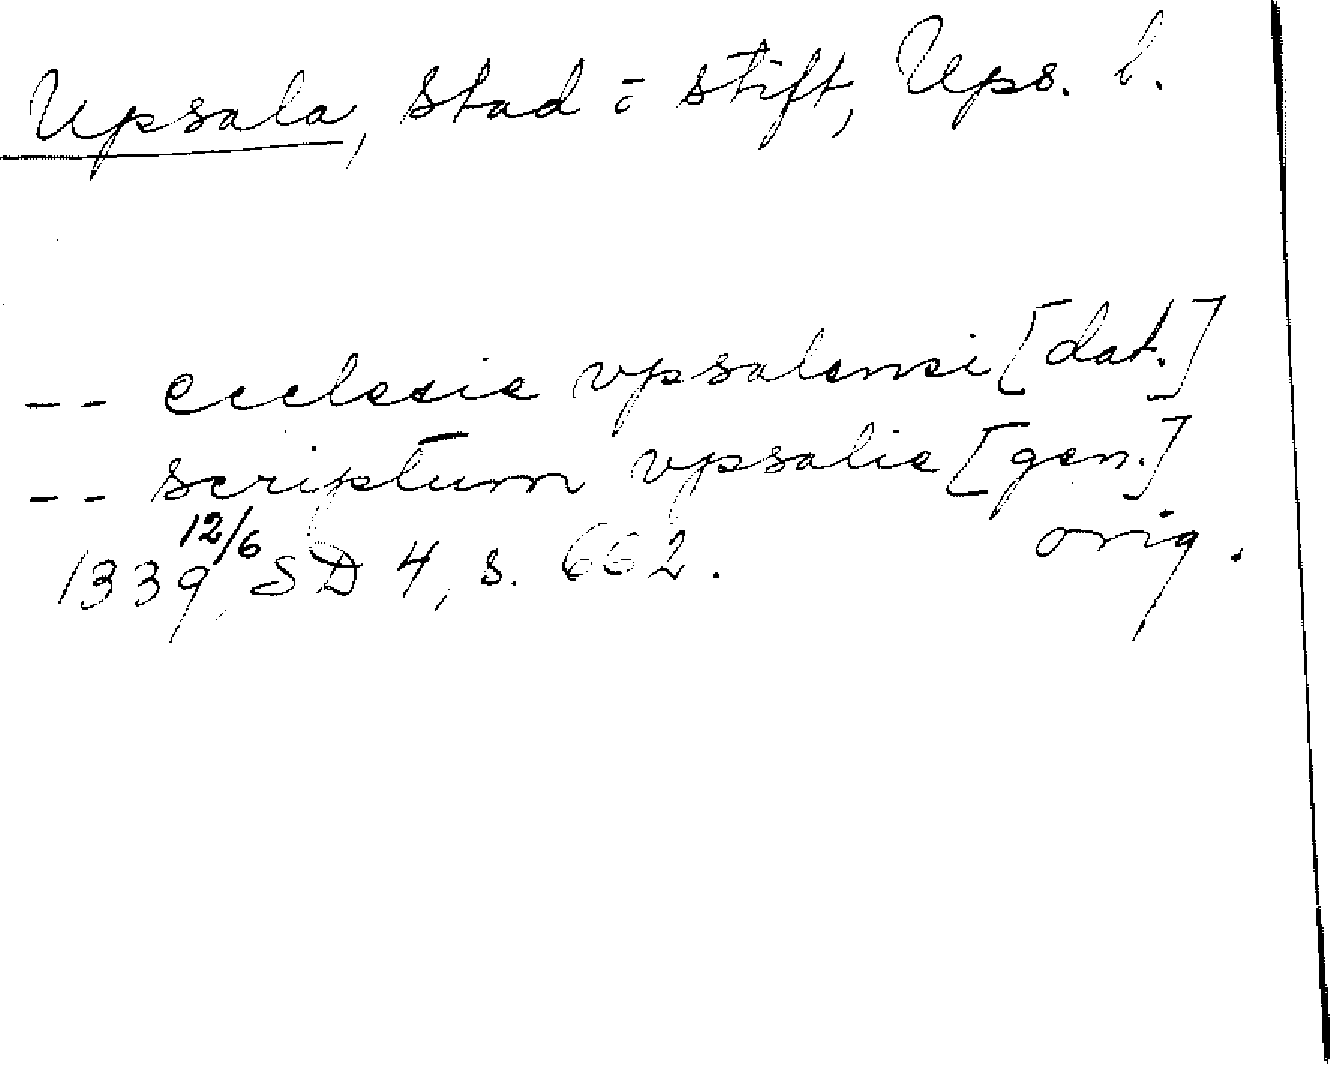 Upsala, stad o stift, Ups. l.
-- ecclesie vpsalensi [dat.]
-- scriptum vpsalie [gen.]
1339 12/6, SD 4, s. 662. orig.